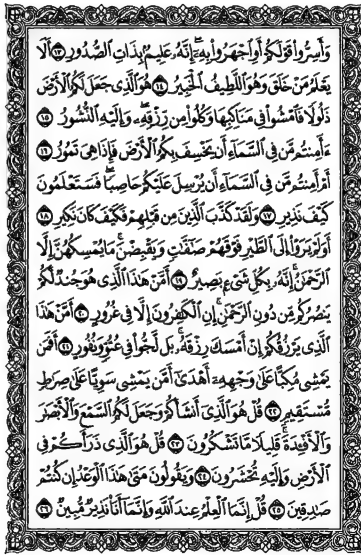 وَأَسِرُّوا۟ قَوْلَكُمْ أَوِ ٱجْهَرُوا۟ بِهِۦٓ ۖ إِنَّهُۥ عَلِيمٌۢ بِذَاتِ ٱلصُّدُورِ ﴿١٣﴾ أَلَا
يَعْلَمُ مَنْ خَلَقَ وَهُوَ ٱللَّطِيفُ ٱلْخَبِيرُ ﴿١٤﴾ هُوَ ٱلَّذِى جَعَلَ لَكُمُ ٱلْأَرْضَ
ذَلُولًا فَٱمْشُوا۟ فِى مَنَاكِبِهَا وَكُلُوا۟ مِن رِّزْقِهِۦ ۖ وَإِلَيْهِ ٱلنُّشُورُ ﴿١٥﴾
ءَأَمِنتُم مَّن فِى ٱلسَّمَآءِ أَن يَخْسِفَ بِكُمُ ٱلْأَرْضَ فَإِذَا هِىَ تَمُورُ ﴿١٦﴾
أَمْ أَمِنتُم مَّن فِى ٱلسَّمَآءِ أَن يُرْسِلَ عَلَيْكُمْ حَاصِبًا ۖ فَسَتَعْلَمُونَ
كَيْفَ نَذِيرِ ﴿١٧﴾ وَلَقَدْ كَذَّبَ ٱلَّذِينَ مِن قَبْلِهِمْ فَكَيْفَ كَانَ نَكِيرِ ﴿١٨﴾
أَوَلَمْ يَرَوْا۟ إِلَى ٱلطَّيْرِ فَوْقَهُمْ صَـٰٓفَّـٰتٍ وَيَقْبِضْنَ ۚ مَا يُمْسِكُهُنَّ إِلَّا
ٱلرَّحْمَـٰنُ ۚ إِنَّهُۥ بِكُلِّ شَىْءٍۭ بَصِيرٌ ﴿١٩﴾ أَمَّنْ هَـٰذَا ٱلَّذِى هُوَ جُندٌ لَّكُمْ
يَنصُرُكُم مِّن دُونِ ٱلرَّحْمَـٰنِ ۚ إِنِ ٱلْكَـٰفِرُونَ إِلَّا فِى غُرُورٍ ﴿٢٠﴾ أَمَّنْ هَـٰذَا
ٱلَّذِى يَرْزُقُكُمْ إِنْ أَمْسَكَ رِزْقَهُۥ ۚ بَل لَّجُّوا۟ فِى عُتُوٍّ وَنُفُورٍ ﴿٢١﴾ أَفَمَن
يَمْشِى مُكِبًّا عَلَىٰ وَجْهِهِۦٓ أَهْدَىٰٓ أَمَّن يَمْشِى سَوِيًّا عَلَىٰ صِرَٰطٍ
مُّسْتَقِيمٍ ﴿٢٢﴾ قُلْ هُوَ ٱلَّذِىٓ أَنشَأَكُمْ وَجَعَلَ لَكُمُ ٱلسَّمْعَ وَٱلْأَبْصَـٰرَ
وَٱلْأَفْـِٔدَةَ ۖ قَلِيلًا مَّا تَشْكُرُونَ ﴿٢٣﴾ قُلْ هُوَ ٱلَّذِى ذَرَأَكُمْ فِى
ٱلْأَرْضِ وَإِلَيْهِ تُحْشَرُونَ ﴿٢٤﴾ وَيَقُولُونَ مَتَىٰ هَـٰذَا ٱلْوَعْدُ إِن كُنتُمْ
صَـٰدِقِينَ ﴿٢٥﴾ قُلْ إِنَّمَا ٱلْعِلْمُ عِندَ ٱللَّهِ وَإِنَّمَآ أَنَا۠ نَذِيرٌ مُّبِينٌ ﴿٢٦﴾